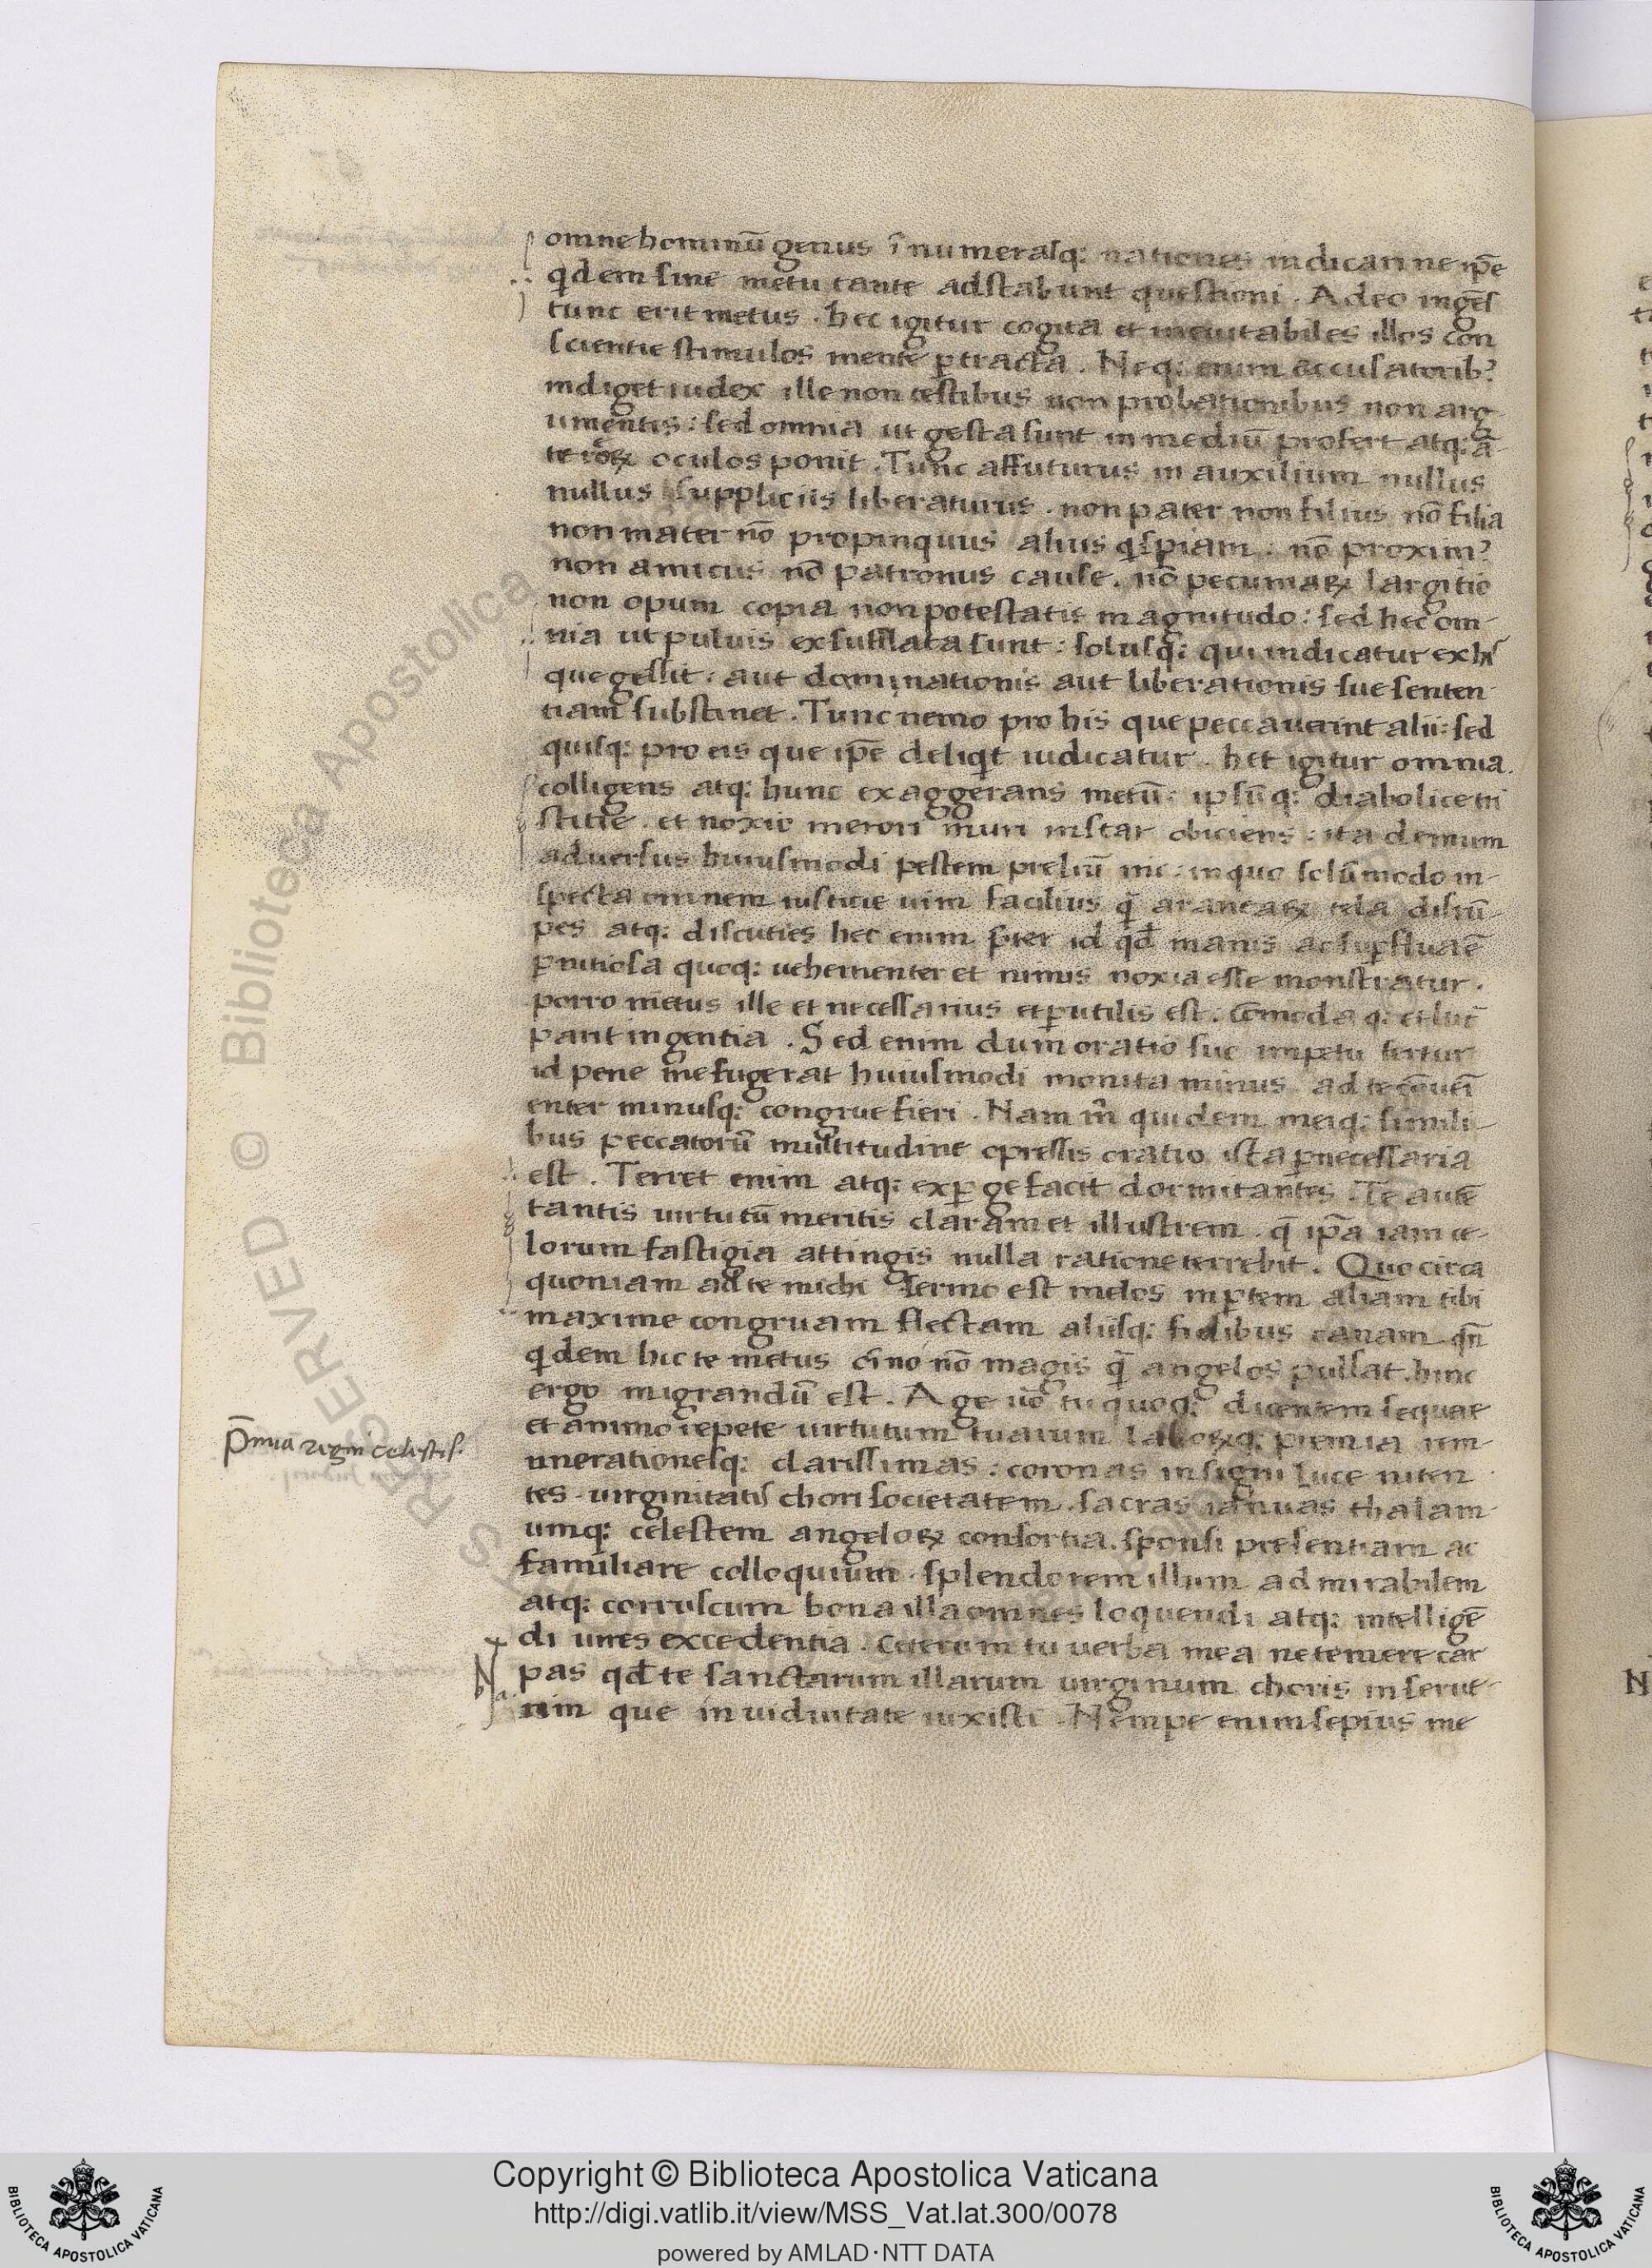 omne hominū genus īnumerasq; nationes iudicari ne ip̄e
qdem sine metu tante adstabunt questioni. Adeo ingēs
tunc erit metus. hec igitur cogita et ineuitabiles illos con
scientie stimulos mente ptracta. Neq; enim accusatorib⁹
indiget iudex ille non testibus non probationibus non arg
umentis: sed omnia ut gesta sunt in mediū profert atq; ā-
te oculos ponit. Tunc affuturus in auxilium nullus
nullus suppliciis liberaturus. non pater non filius nō filia
non mater nō propinquus alius qspiam. nō proxim⁹
non amicus nō patronus cause. nō pecuniaꝝ largitio
non opum copia non potestatis magnitudo: sed hec om-
nia ut puluis exsufflata sunt: solusq; qui iudicatur ex his
que gessit. aut damnationis aut liberationis sue senten
tiam substinet. Tunc nemo pro his que peccauerint alii: sed
quisq; pro eis que ip̄e deliqt iudicatur. hec igitur omnia.
colligens atq; hunc exaggerans metū. ipsūq; diabolice tri
stitie. et noxio merori muri instar obiciens: ita demum
aduersus huiusmodi pestem preliū ini: in quo solūmodo in-
specta omnem iusticie uim facilius q̄ araneaꝝ tela disrū-
pes atq; discuties hec enim p̄ter id qd̄ inanis ac supflua ē
pnitiosa quoq; uehementer et nimis noxia esse monstratur.
porro metus ille et necessarius et putilis est. cōmodaq; et luc̄
parit ingentia. Sed enim dum oratio suo impetu fertur
id pene me fugerat huiusmodi monita minus ad te cōueni
enter minusq; congrue fieri. Nam m̄ quidem meiq; simili-
bus peccatorū multitudine opressis oratio ista pnecessaria
est. Terret enim atq; expgefacit dormitantes. Te autē
tantis uirtutū meritis claram et illustrem. q̄ ip̄a iam ce-
lorum fastigia attingis nulla ratione terrebit. Quo circa
quoniam ad te michi sermo est melos in ptem aliam tibi
maxime congruam flectam aliisq; fidibus canam. qn̄
qdem hic te metus nō magis q̄ angelos pulsat. hinc
ergo migrandū est. Age uō tu quoq; dicentem sequar
et animo repete uirtutum tuarum laboꝝq; premia rem-
unerationesq; clarissimas: coronas insigni luce niten
tes. uirginitatis chori societatem. sacras ianuas thalam-
umq; celestem angeloꝝ consortia. sponsi presentiam ac
familiare colloquium. splendorem illum admirabilem
atq; corruscum bona illa omnes loquendi atq; intelligē
di uires excedentia. Ceterum tu uerba mea ne temere car
pas qd̄ te sanctarum illarum uirginum choris inserue-
rim que in uiduitate uixisti. Nempe enim sepius me
P̄mia regni celestis.
Copyright © Biblioteca Apostolica Vaticana
http://digi.vatlib.it/view/MSS_Vat.lat.300/0078
powered by AMLAD·NTT DATA
BIBLIOTECA APOSTOLICA VATICANA
BIBLIOTECA APOSTOLICA VATICANA